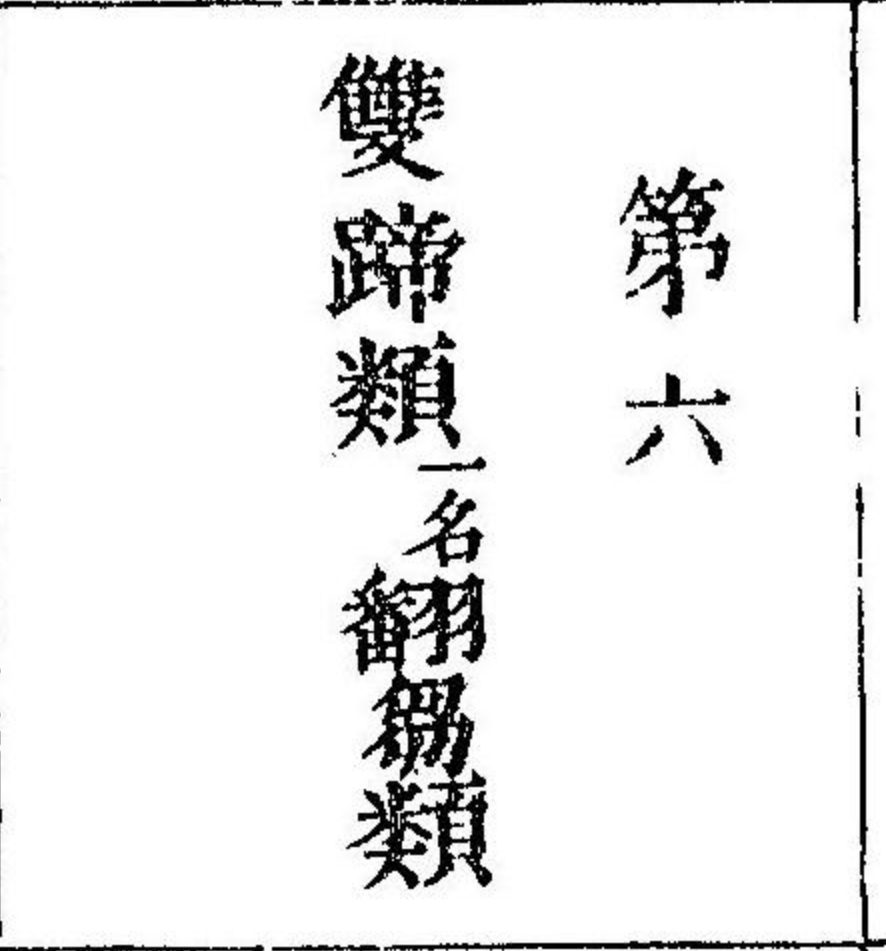 第六
雙蹄類一名翻芻類